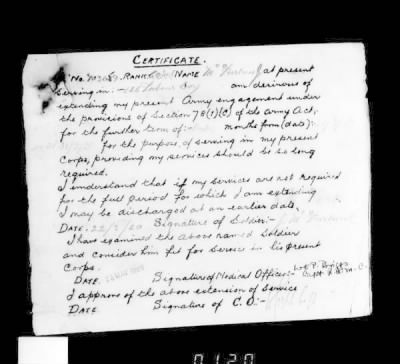 CERTIFICATE.
No. RANK NAME at present
serving in:- and desirous of
extending my present Army engagement under
the provisions of Section 78(1)(C) of the Army Act,
for the further term of:- months from (date):-
for the purpose of serving in my present
Corps, providing my services should be so long
required.
I understand that if my services are not required
for the full period for which I am extending
I may be discharged at an earlier date.
DATE. 22/3/20 Signature of Soldier:-
I have examined the above named Soldier
and consider him fit for Service in his present
Corps.
DATE. Signature of Medical Officer:-
I approve of the above extension of service
DATE Signature of C.O:-
0120